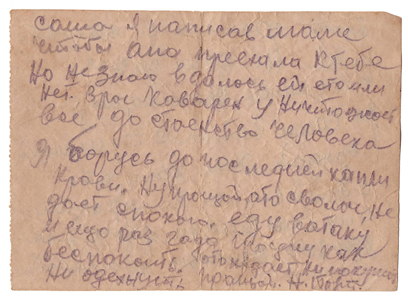 саша я написав маме
чтобы ана преехала к тебе
Но не знаю вдолось ей ето или
нет. Враг Коварен у Ничтожает
все до стоенство человека
Я борусь до последней капли
крови. Ну прощай, ато сволоч, не
дает спокою. еду ватаку
и ещо раз гада поеду как
беспокоить.
Ни одежнуть прощай. Н.